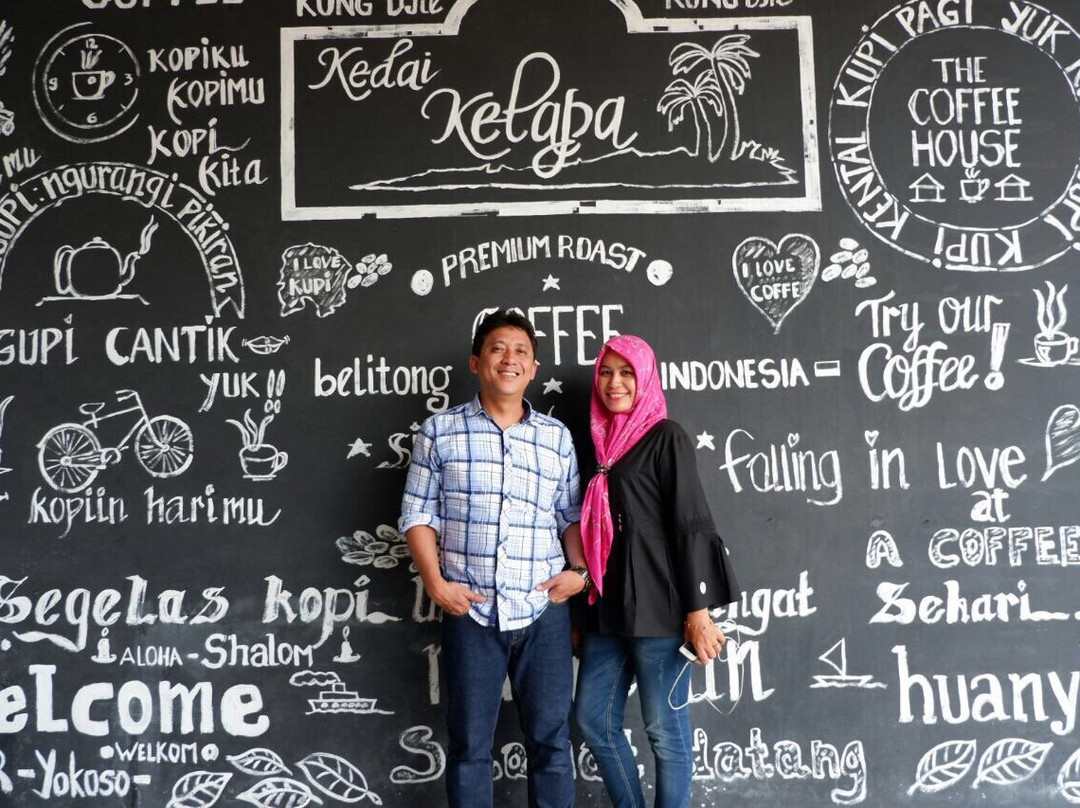 COFFEE
KUNG DJIE
KUNG DJIE
12
9 3
6
KOPIKU
KOPIMU
KOPI
Kita
Kedai
Kelapa
KUPI PAGI YUK
KUPI KENTAL KUPI
THE
COFFEE
HOUSE
NGUPI: ngurangi Pikiran
I LOVE
KUPI
PREMIUM ROAST
COFFEE
I LOVE
COFFE
Try our
Coffee!
GUPI CANTIK
YUK!!
belitong
INDONESIA
Kopiin harimu
Falling in Love
at
A COFFEE
Segelas kopi
ngat
Sehari
ALOHA - Shalom
Welcome
huany
WELKOM
- Yokoso -
Selamat Datang